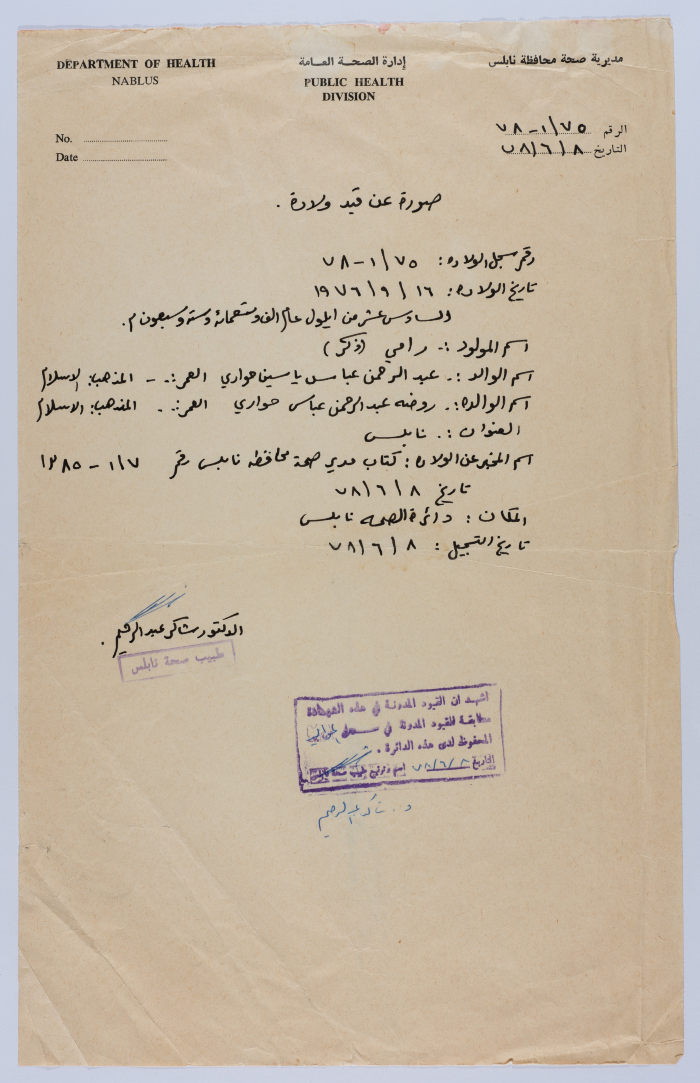 DEPARTMENT OF HEALTH
NABLUS
إدارة الصحة العامة
PUBLIC HEALTH
DIVISION
مديرية صحة محافظة نابلس
No.
Date
الرقم ٧٨-١/٧٥
التاريخ ٧٨/٦/٨
صورة عن قيد ولادة .
رقم سجل الولاده : ٧٨-١/٧٥
تاريخ الولاده : ١٩٧٦/٩/١٦
السادس عشر من ايلول عام الف وتسعمائة وستة وسبعون م.
اسم المولود :. رامي (ذكر)
اسم الوالد :. عبد الرحمن عباس ياسين حواري العمر :. - المذهب: الاسلام
اسم الوالده :. روضه عبد الرحمن عباس حواري العمر :. - المذهب: الاسلام
العنوان :. نابلس
اسم المخبر عن الولاده : كتاب مدير صحة محافظه نابلس رقم ١/٧-
تاريخ ٧٨/٦/٨
المكان : دائرة الصحه نابلس
تاريخ التسجيل : ٧٨/٦/٨
الدكتور شاكر عبد الرحيم .
طبيب صحة نابلس
اشهد ان القيود المدونة في هذه الشهادة
مطابقة للقيود المدونة في سجل
المحفوظ لدى هذه الدائرة .
التاريخ ٧٨/٦/٨ اسم وتوقيع طبيب صحة نابلس
د. شاكر عبد الرحيم